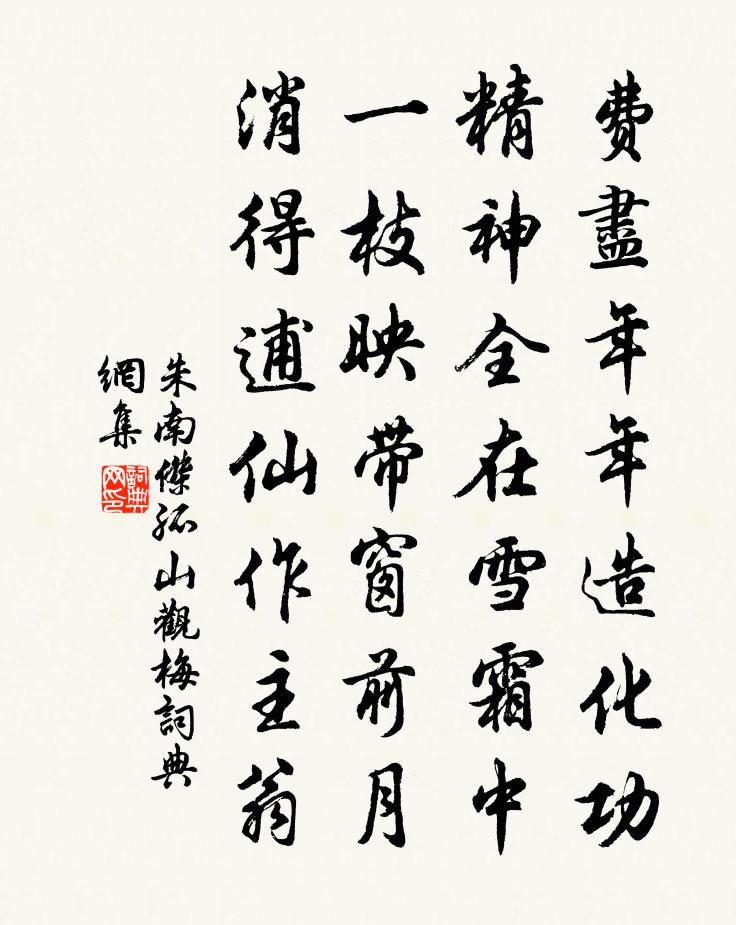 費盡年年造化功
精神全在雪霜中
一枝映帶窗前月
消得逋仙作主翁
朱南傑孤山觀梅詞典
網集
詞典
网印